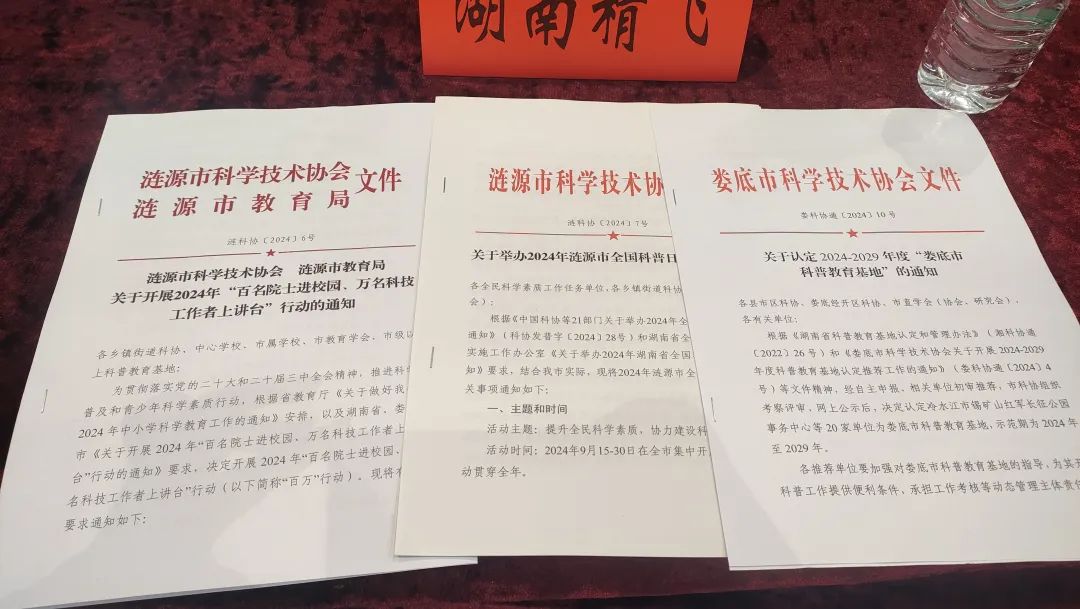 湖南精飞
涟源市科学技术协会
涟源市教育局
文件
涟科协〔2024〕6号
涟源市科学技术协会 涟源市教育局
关于开展2024年“百名院士进校园、万名科技
工作者上讲台”行动的通知
各乡镇街道科协、中心学校、市属学校、市教育学会、市级以
上科普教育基地：
为贯彻落实党的二十大和二十届三中全会精神，推进科学
普及和青少年科学素质行动，根据省教育厅《关于做好我
2024年中小学科学教育工作的通知》安排，以及湖南省、娄
市《关于开展2024年“百名院士进校园、万名科技工作者上
台”行动的通知》要求，决定开展2024年“百名院士进校园、
名科技工作者上讲台”行动（以下简称“百万”行动）。现将有
要求通知如下：
涟源市科学技术协
涟科协〔2024〕7号
关于举办2024年涟源市全国科普日
各全民科学素质工作任务单位，各乡镇街道科协
会）：
根据《中国科协等21部门关于举办2024年全
通知》（科协发普字〔2024〕28号）和湖南省全民
实施工作办公室《关于举办2024年湖南省全国
知》要求，结合我市实际，现将2024年涟源市全
关事项通知如下：
一、主题和时间
活动主题：提升全民科学素质，协力建设科
活动时间：2024年9月15-30日在全市集中开
动贯穿全年。
娄底市科学技术协会文件
娄科协通〔2024〕10号
关于认定2024-2029年度“娄底市
科普教育基地”的通知
各县市区科协、娄底经开区科协、市直学会（协会、研究会），
各有关单位：
根据《湖南省科普教育基地认定和管理办法》（湘科协通
〔2022〕26号）和《娄底市科学技术协会关于开展2024-2029
年度科普教育基地认定推荐工作的通知》（娄科协通〔2024〕4
号）等文件精神，经自主申报、相关单位初审推荐，市科协组织
考察评审，网上公示后，决定认定冷水江市锡矿山红军长征公园
事务中心等20家单位为娄底市科普教育基地，示范期为2024年
至2029年。
各推荐单位要加强对娄底市科普教育基地的指导，为其开
科普工作提供便利条件，承担工作考核等动态管理主体责任